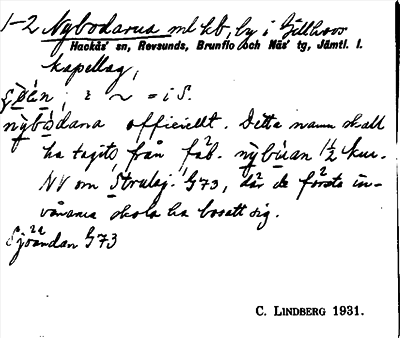 1-2 Nybodarna ml kb, by i Gillhovs
Hackås sn, Revsunds, Brunflo och Näs tg, Jämtl. l.
kapellag,
~ = i S.
nybòdana officiellt. Detta namn skall
ha tagits från fäb. nybúan 1 1/2 km.
NV om Strulsj. G73, där de första in-
vånarna skola ha bosatt sig.
Sjöändan G73
C. LINDBERG 1931.